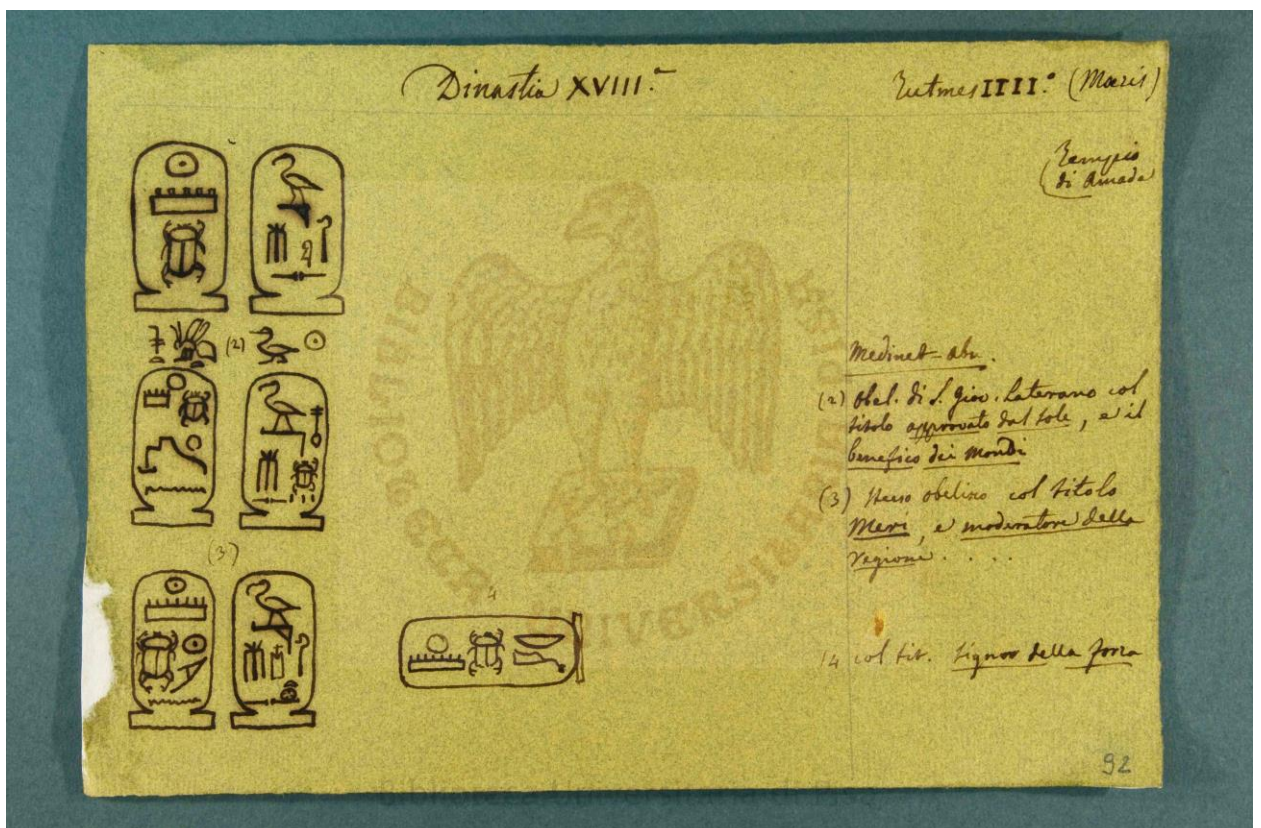 Dinastia XVIII.ª
Tutmes IIII.º (Mæris)
Tempio
di Amada
(2)
Medinet-abu.
(2) Obel. di S. Giov. Laterano col
titolo approvato dal sole, e il
benefico dei mondi
(3) stesso obelisco col titolo
Meri, e moderatore della
regione . . . .
(3)
4
4 col tit. signor della forza
92